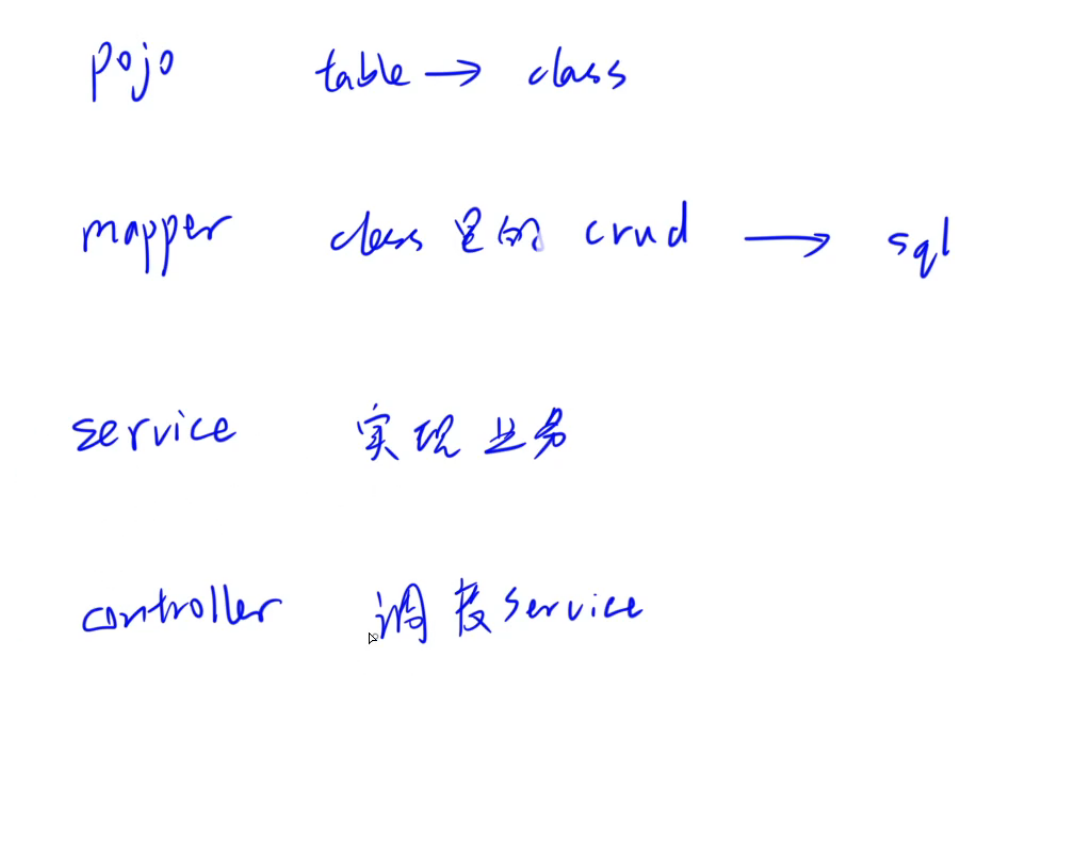 pojo table → class
mapper class里的 crud → sql
service 实现业务
controller 调度service